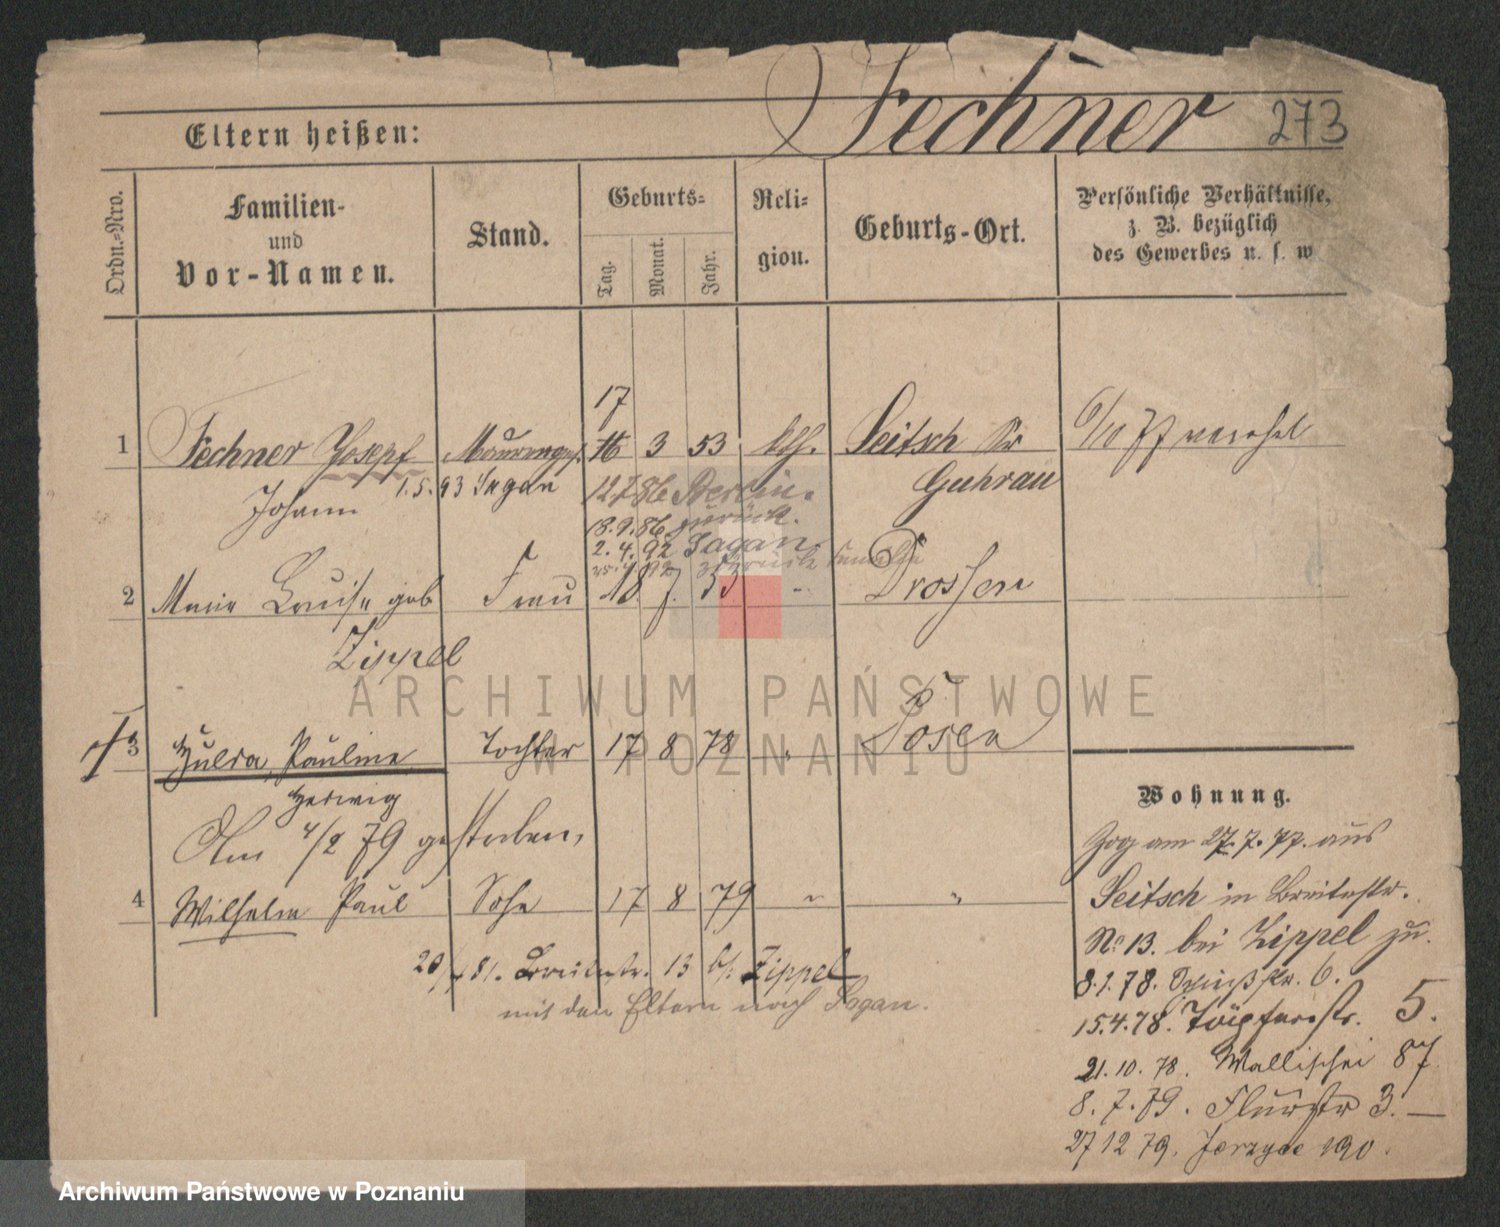 Fechner 273
Eltern heißen:
Ordn.=Nro.
Familien-
und
Vor-Namen.
Stand.
Geburts=
Tag.
Monat.
Jahr.
Reli=
gion.
Geburts-Ort.
Persönliche Verhältnisse,
z. B. bezüglich
des Gewerbes u. s. w
17
1 Fechner Josepf 16 3 53 kth. Seitsch Kr 6/10 77
Johann 1.5.93 Sagan Guhrau
12 7 86 Berlin.
18.9.86 zurück.
2.4.92 Sagan.
2 Marie Louise geb Frau 18 7. 53 " Drossen
Zippel
3 Hulda, Pauline Tochter 17 8 78 " Posen
Hedwig
Am 4/2 79 gestorben,
4 Wilhelm Paul Sohn 17 8 79 " "
20/4 81. Breitestr. 13 b/: Zippel
mit den Eltern nach Sagan.
Wohnung.
Zog am 27.7.77. aus
Seitsch in Breitestr.
No 13. bei Zippel zu.
8.1.78. 6.
15.4.78. Töpferstr. 5.
21.10.78. Wallischei 87
8.7.79. Flurstr 3. —
27 12 79. Jerzyce 190.
ARCHIWUM PAŃSTWOWE
W POZNANIU
Archiwum Państwowe w Poznaniu